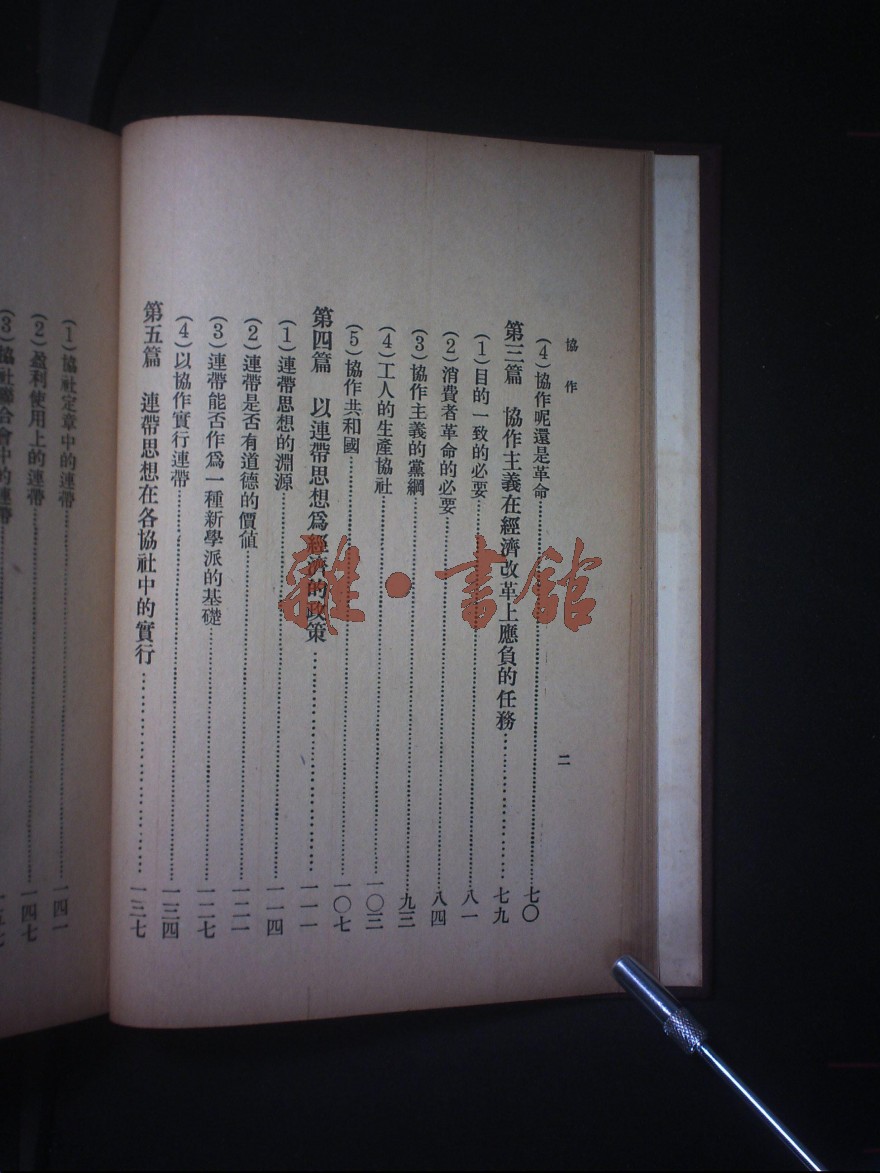 協作
二
(4)協作呢還是革命……七〇
第三篇 協作主義在經濟改革上應負的任務……七九
(1)目的一致的必要……八一
(2)消費者革命的必要……八四
(3)協作主義的黨綱……九三
(4)工人的生產協社……一〇三
(5)協作共和國……一〇七
第四篇 以連帶思想爲經濟的政策……一一一
(1)連帶思想的淵源……一一四
(2)連帶是否有道德的價值……一二一
(3)連帶能否作爲一種新學派的基礎……一二七
(4)以協作實行連帶……一三四
第五篇 連帶思想在各協社中的實行……一三七
(1)協社定章中的連帶……一四一
(2)盈利使用上的連帶……一四七
(3)協社聯合會中的連帶
雜·書館